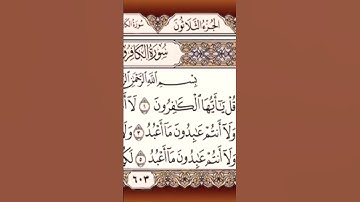 الجُزءُ الثَّلَاثُونَ سُورَةُ
سُورَةُ الكَافِرُو
بِسْمِ ٱللَّهِ ٱلرَّحْمَٰنِ
قُلْ يَٰٓأَيُّهَا ٱلْكَٰفِرُونَ ١ لَآ
وَلَآ أَنتُمْ عَٰبِدُونَ مَآ أَعْبُدُ ٣
وَلَآ أَنتُمْ عَٰبِدُونَ مَآ أَعْبُدُ ٥
٦٠٣